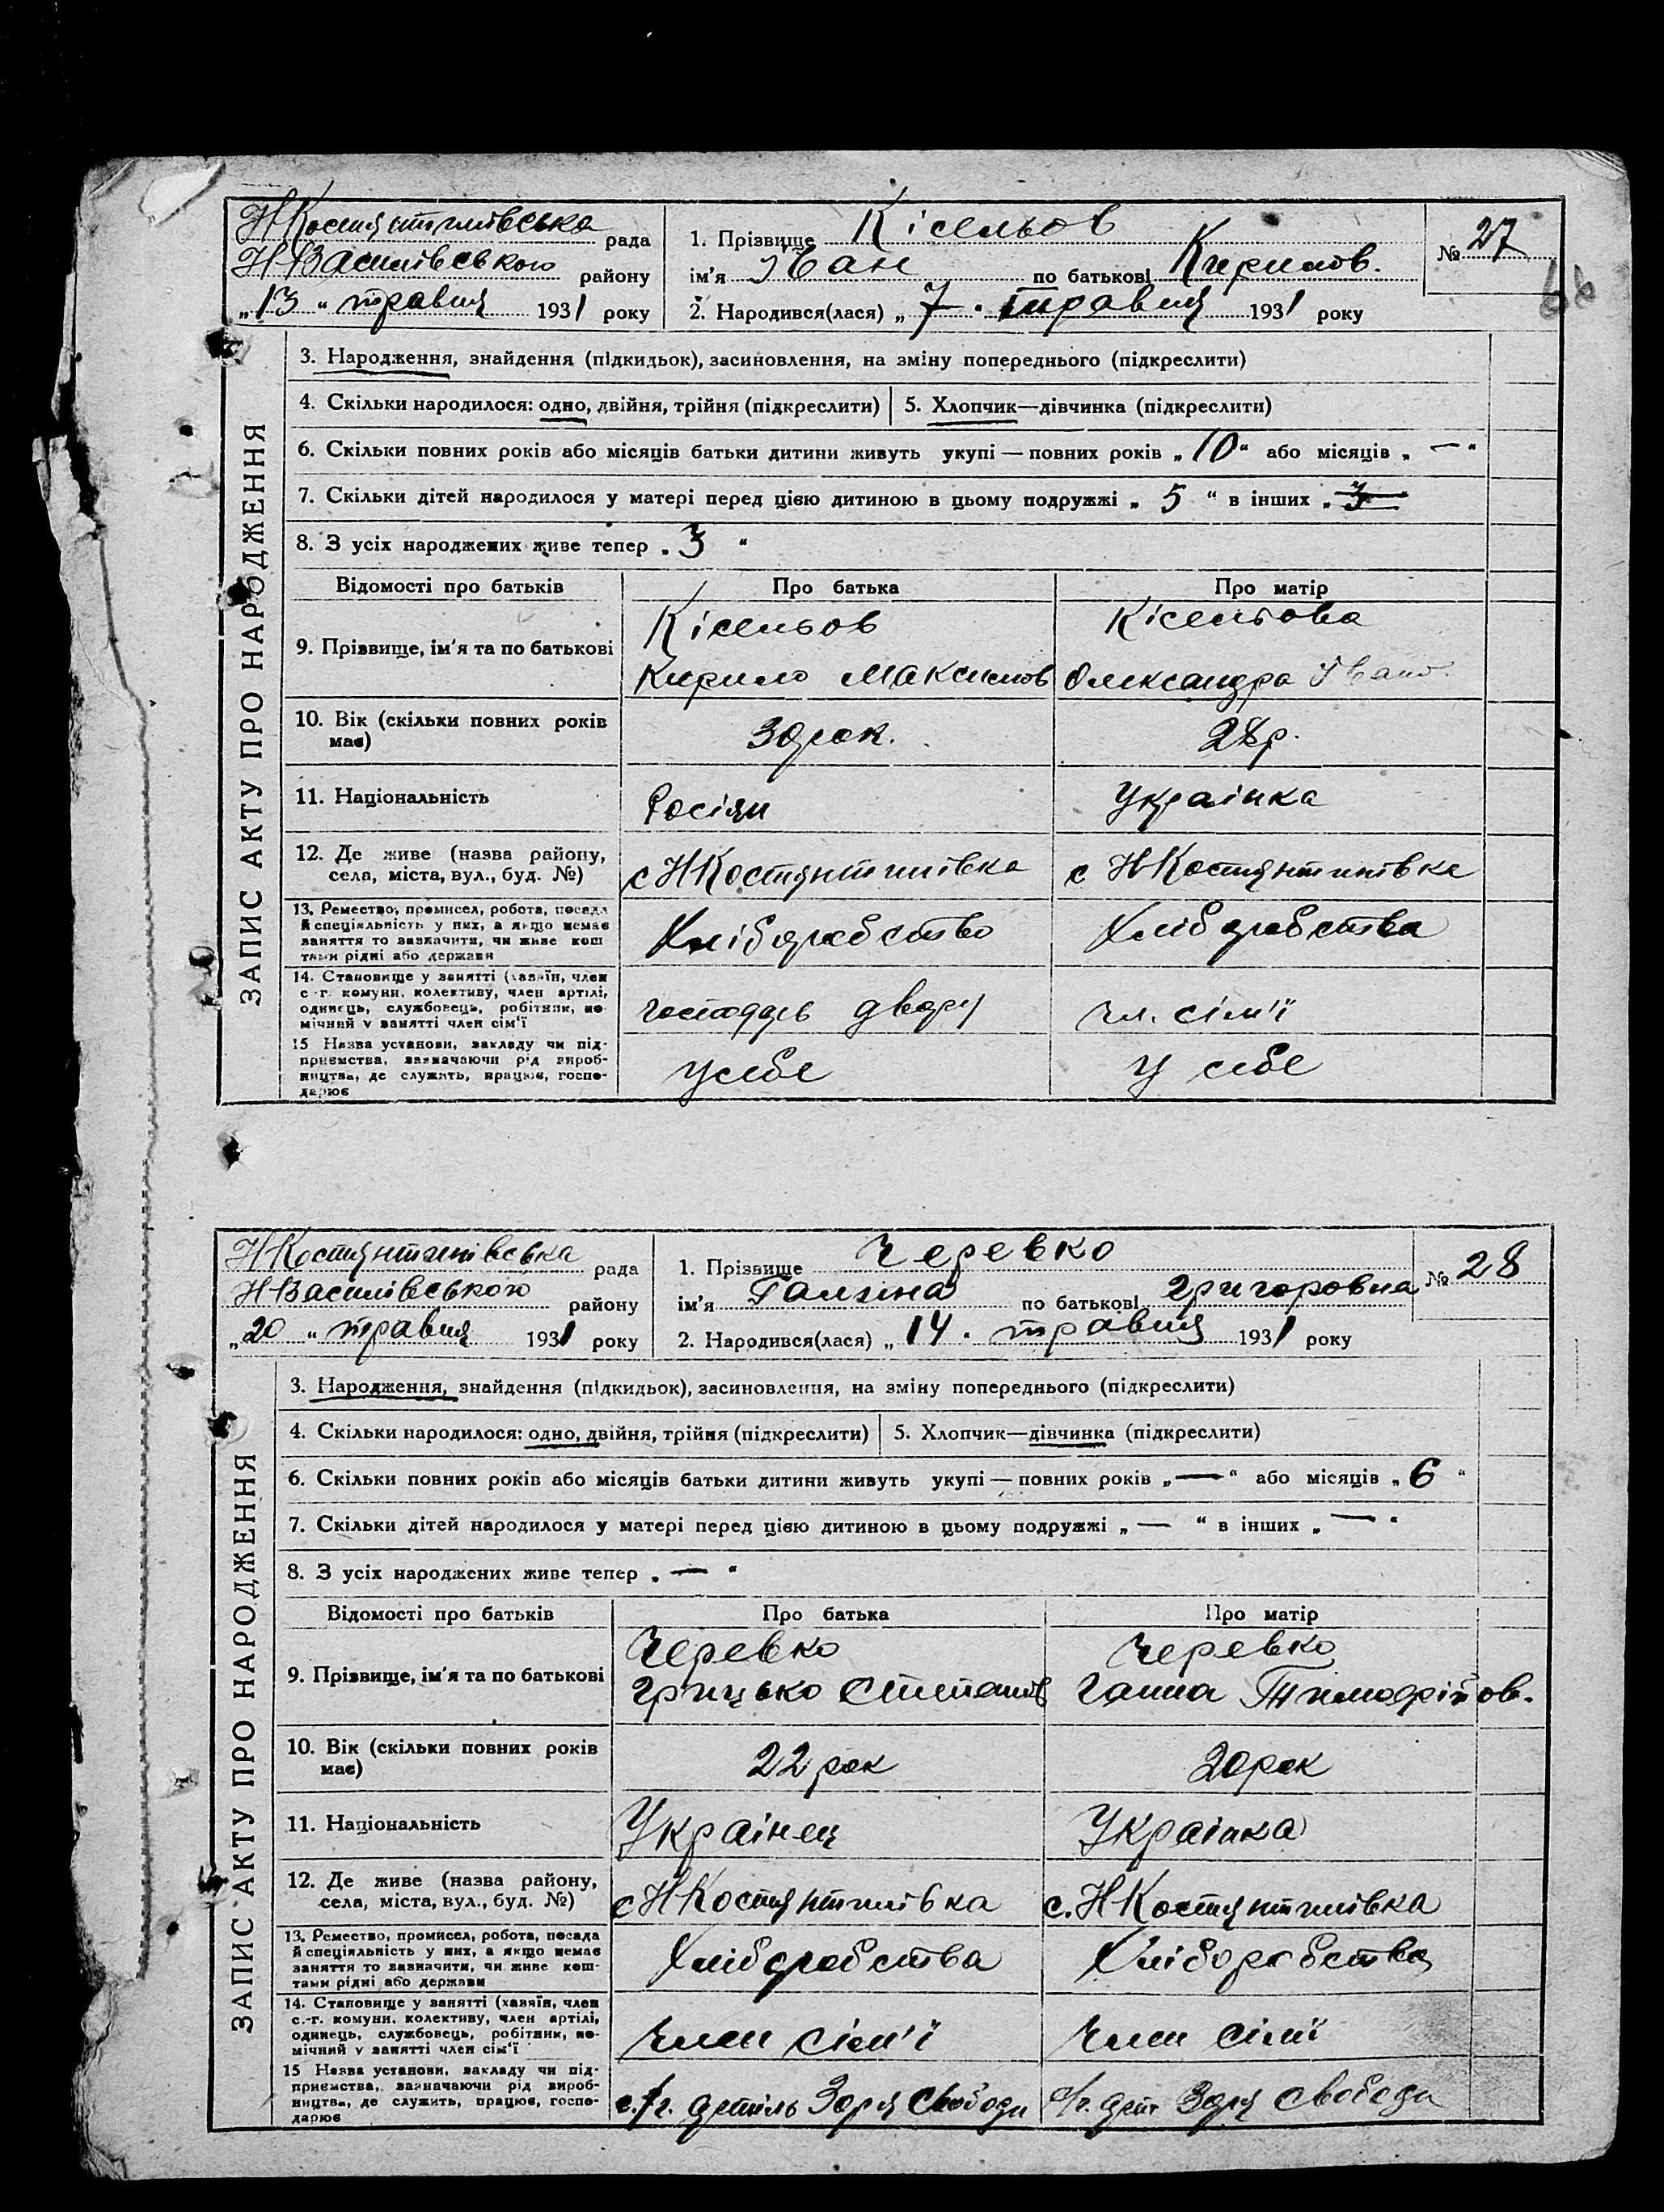 Н Костянтинівська рада
Н Василівського району
„13" травня 1931 року
1. Прізвище Кісельов
ім'я Іван по батькові Кирилов.
2. Народився(лася) „7" травня 1931 року
№ 27
68
ЗАПИС АКТУ ПРО НАРОДЖЕННЯ
3. Народження, знайдення (підкидьок), засиновлення, на зміну попереднього (підкреслити)
4. Скільки народилося: одно, двійня, трійня (підкреслити) 5. Хлопчик—дівчинка (підкреслити)
6. Скільки повних років або місяців батьки дитини живуть укупі — повних років „10" або місяців „—"
7. Скільки дітей народилося у матері перед цією дитиною в цьому подружжі „5" в інших „3
8. З усіх народжених живе тепер „3"
Відомості про батьків Про батька Про матір
9. Прізвище, ім'я та по батькові Кісельов Кісельова
Кирило Максимов Олександра Іван.
10. Вік (скільки повних років має) 30 рок. 28 р.
11. Національність Росіян Українка
12. Де живе (назва району, села, міста, вул., буд. №) с Н Костянтинівка с Н Костянтинівка
13. Ремество, промисел, робота, посада й спеціяльність у них, а якщо немає заняття то зазначити, чи живе коштами рідні або держави Хліборобство Хліборобства
14. Становище у занятті (хазяїн, член с.-г. комуни, колективу, член артілі, одинець, службовець, робітник, помічний у занятті член сім'ї господарь двору чл. сім'ї
15 Назва установи, закладу чи підприємства, зазначаючи рід виробництва, де служить, працює, господарює у себе у себе
Н Костянтинівська рада
Н Василівського району
„20" травня 1931 року
1. Прізвище Черевко
ім'я Галина по батькові Григоровна
2. Народився(лася) „14" травня 1931 року
№ 28
ЗАПИС АКТУ ПРО НАРОДЖЕННЯ
3. Народження, знайдення (підкидьок), засиновлення, на зміну попереднього (підкреслити)
4. Скільки народилося: одно, двійня, трійня (підкреслити) 5. Хлопчик—дівчинка (підкреслити)
6. Скільки повних років або місяців батьки дитини живуть укупі — повних років „—" або місяців „6"
7. Скільки дітей народилося у матері перед цією дитиною в цьому подружжі „—" в інших „—"
8. З усіх народжених живе тепер „—"
Відомості про батьків Про батька Про матір
9. Прізвище, ім'я та по батькові Черевко Черевко
Грицько Степанів Ганна Тимофійов.
10. Вік (скільки повних років має) 22 рок 20 рок
11. Національність Українец Українка
12. Де живе (назва району, села, міста, вул., буд. №) с Н Костянтинівка с. Н Костянтинівка
13. Ремество, промисел, робота, посада й спеціяльність у них, а якщо немає заняття то зазначити, чи живе коштами рідні або держави Хліборобства Хліборобства
14. Становище у занятті (хазяїн, член с.-г. комуни, колективу, член артілі, одинець, службовець, робітник, помічний у занятті член сім'ї член сім'ї член сім'ї
15 Назва установи, закладу чи підприємства, зазначаючи рід виробництва, де служить, працює, господарює с./г. артіль Зоря Свободи с/г. арт. Зоря Свободи